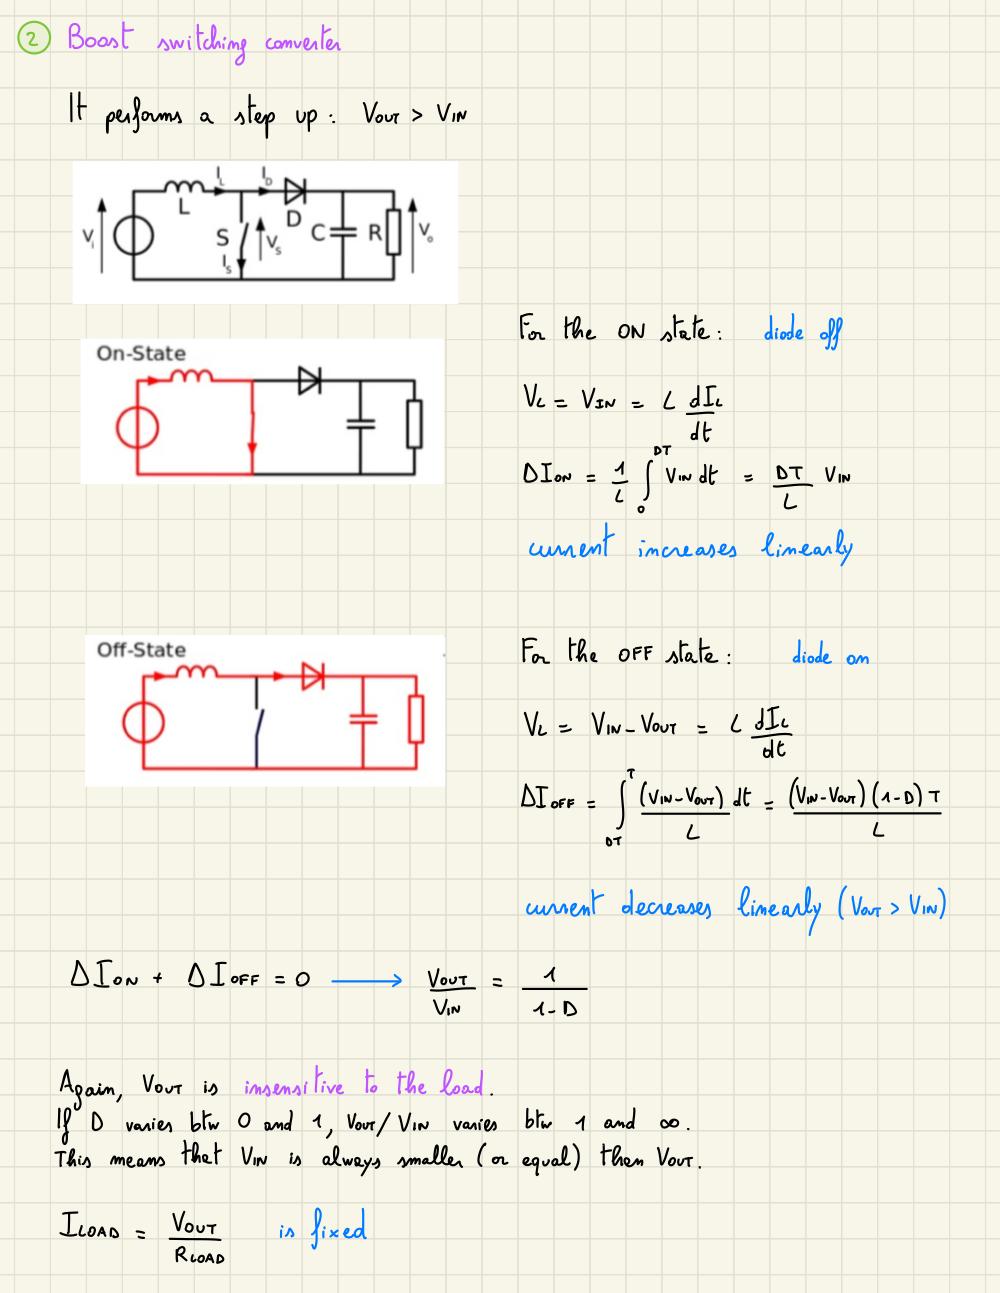 2 Boost switching converter
It performs a step up : VOUT > VIN
IL ID
L D
Vi S VS C R Vo
IS
For the ON state : diode off
On-State
VL = VIN = L dIL/dt
ΔION = 1/L ∫₀^DT VIN dt = DT/L VIN
current increases linearly
For the OFF state : diode on
Off-State
VL = VIN - VOUT = L dIL/dt
ΔIOFF = ∫_DT^T (VIN-VOUT)/L dt = (VIN-VOUT)(1-D)T/L
current decreases linearly (VOUT > VIN)
ΔION + ΔIOFF = 0 ⟶ VOUT/VIN = 1/(1-D)
Again, VOUT is insensitive to the load.
If D varies btw 0 and 1, VOUT/VIN varies btw 1 and ∞.
This means that VIN is always smaller (or equal) then VOUT.
ILOAD = VOUT/RLOAD is fixed